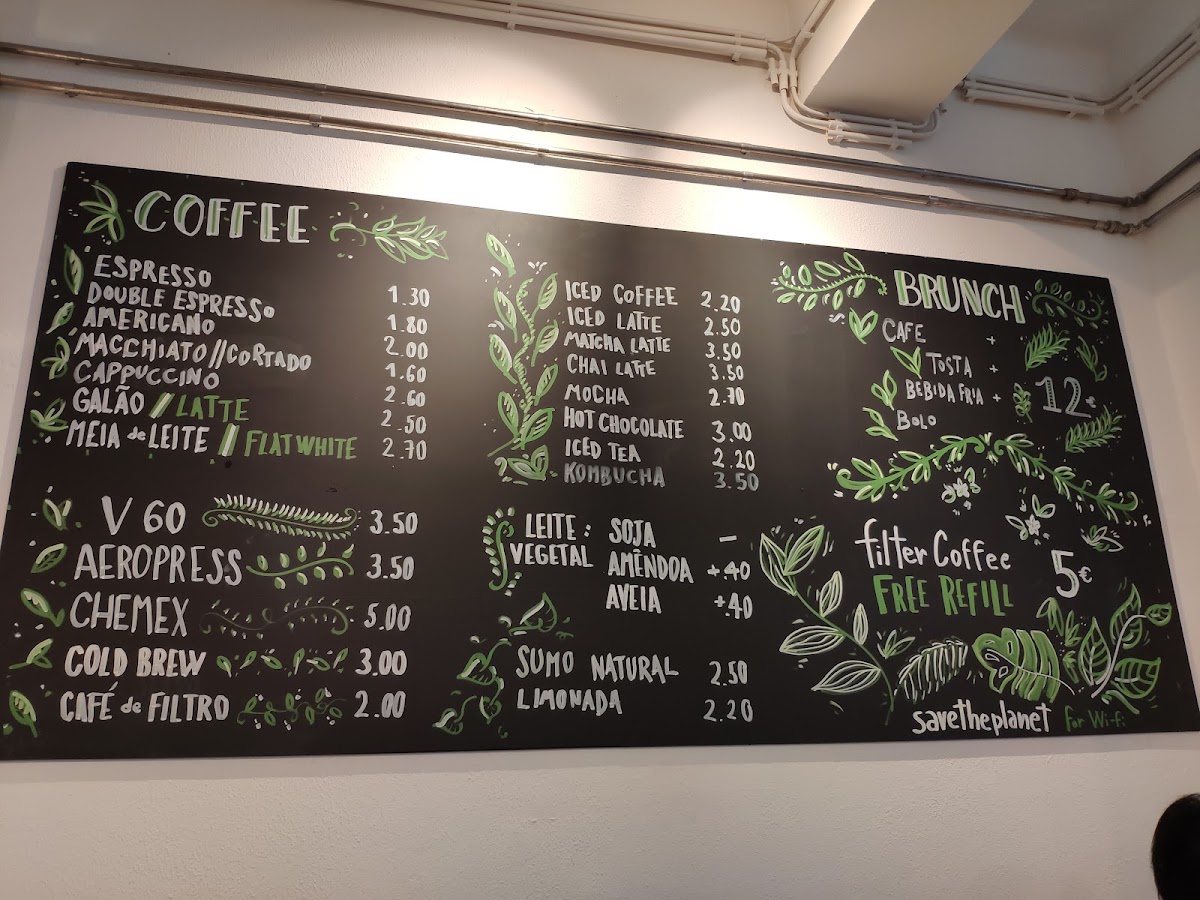 COFFEE
ESPRESSO 1.30
DOUBLE ESPRESSO 1.80
AMERICANO 2.00
MACCHIATO//CORTADO 1.60
CAPPUCCINO 2.60
GALÃO // LATTE 2.50
MEIA de LEITE // FLAT WHITE 2.70
V60 3.50
AEROPRESS 3.50
CHEMEX 5.00
COLD BREW 3.00
CAFÉ de FILTRO 2.00
ICED COFFEE 2.20
ICED LATTE 2.50
MATCHA LATTE 3.50
CHAI LATTE 3.50
MOCHA 2.70
HOT CHOCOLATE 3.00
ICED TEA 2.20
KOMBUCHA 3.50
LEITE : SOJA —
VEGETAL AMÊNDOA +.40
AVEIA +.40
SUMO NATURAL 2.50
LIMONADA 2.20
BRUNCH
CAFE +
TOSTA +
BEBIDA FRIA +
BOLO
12€
filter Coffee
FREE REFILL
5€
savetheplanet for Wi-fi